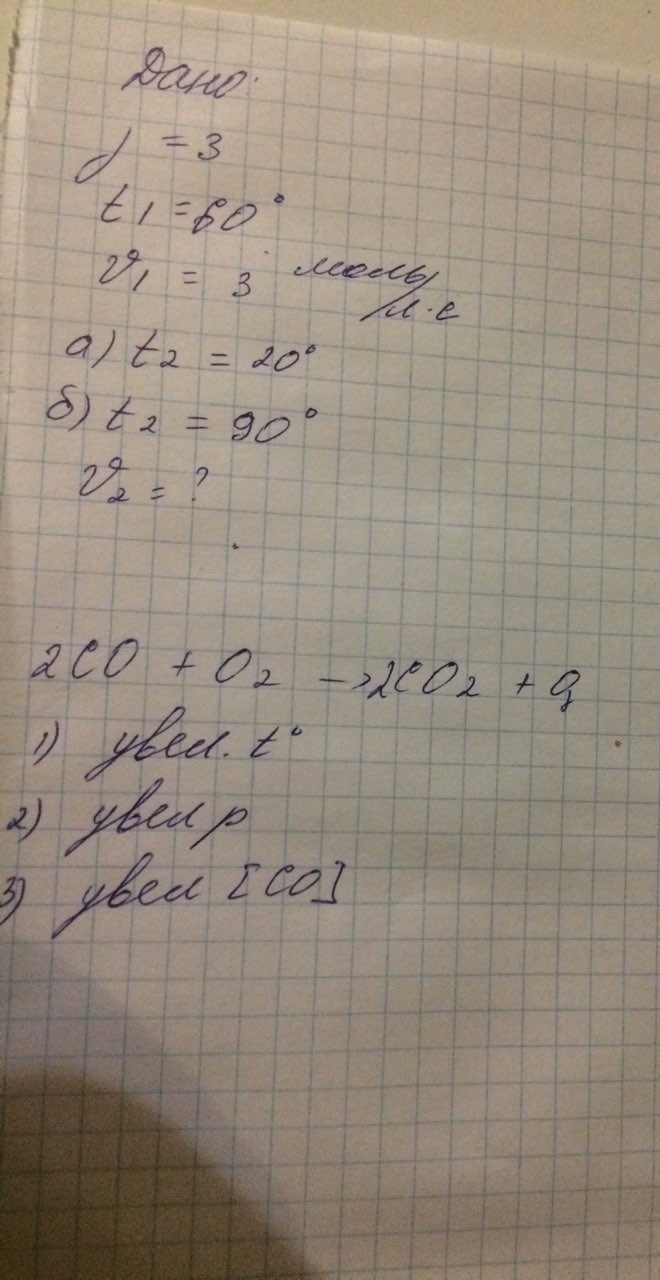 Дано:
γ = 3
t1 = 60°
V1 = 3 моль/л·с
а) t2 = 20°
б) t2 = 90°
V2 = ?
2CO + O2 → 2CO2 + Q
1) увел. t°
2) увел p
3) увел [CO]